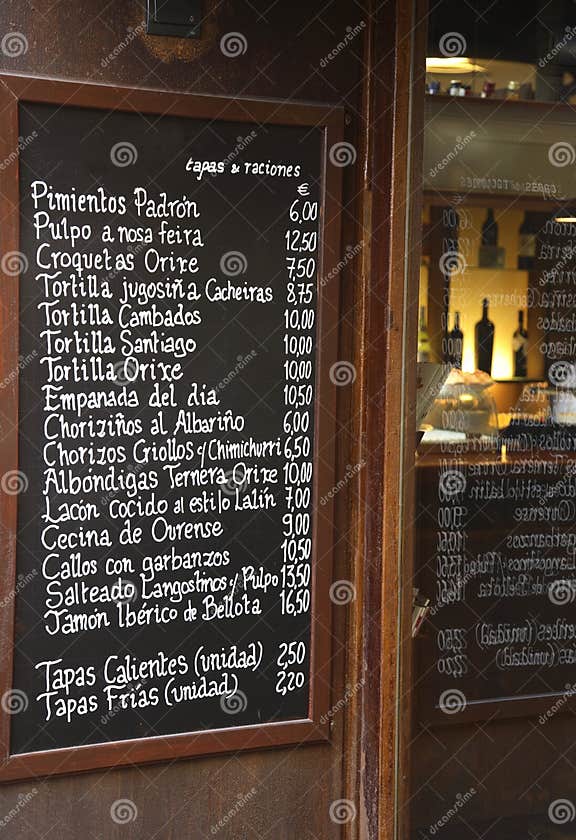 tapas & raciones
€
Pimientos Padrón 6,00
Pulpo a nosa feira 12,50
Croquetas Orixe 7,50
Tortilla jugosiña Cacheiras 8,75
Tortilla Cambados 10,00
Tortilla Santiago 10,00
Tortilla Orixe 10,00
Empanada del día 10,50
Choriziños al Albariño 6,00
Chorizos Griollos y Chimichurri 6,50
Albóndigas Ternera Orixe 10,00
Lacón cocido al estilo Lalín 7,00
Cecina de Ourense 9,00
Callos con garbanzos 10,50
Salteado Langostinos y Pulpo 13,50
Jamón Ibérico de Bellota 16,50
Tapas Calientes (unidad) 2,50
Tapas Frías (unidad) 2,20